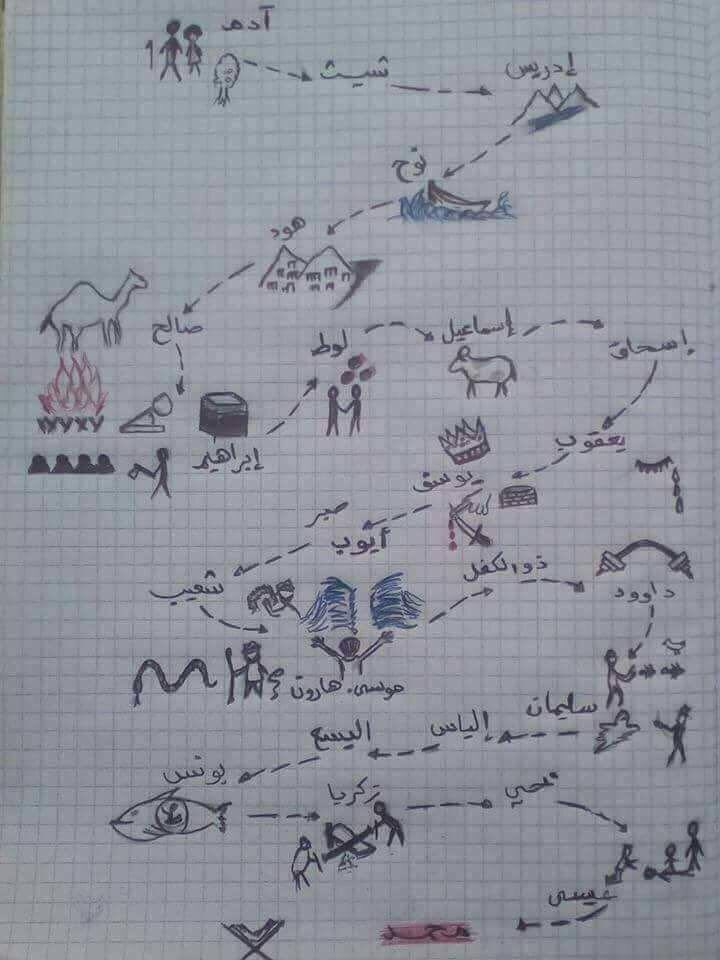 آدم
شيث
إدريس
نوح
هود
صالح
إبراهيم
لوط
إسماعيل
إسحاق
يعقوب
يوسف
صبر
أيوب
شعيب
موسى. هارون
ذو الكفل
داوود
سليمان
إلياس
اليسع
يونس
زكريا
يحيى
عيسى
محمد